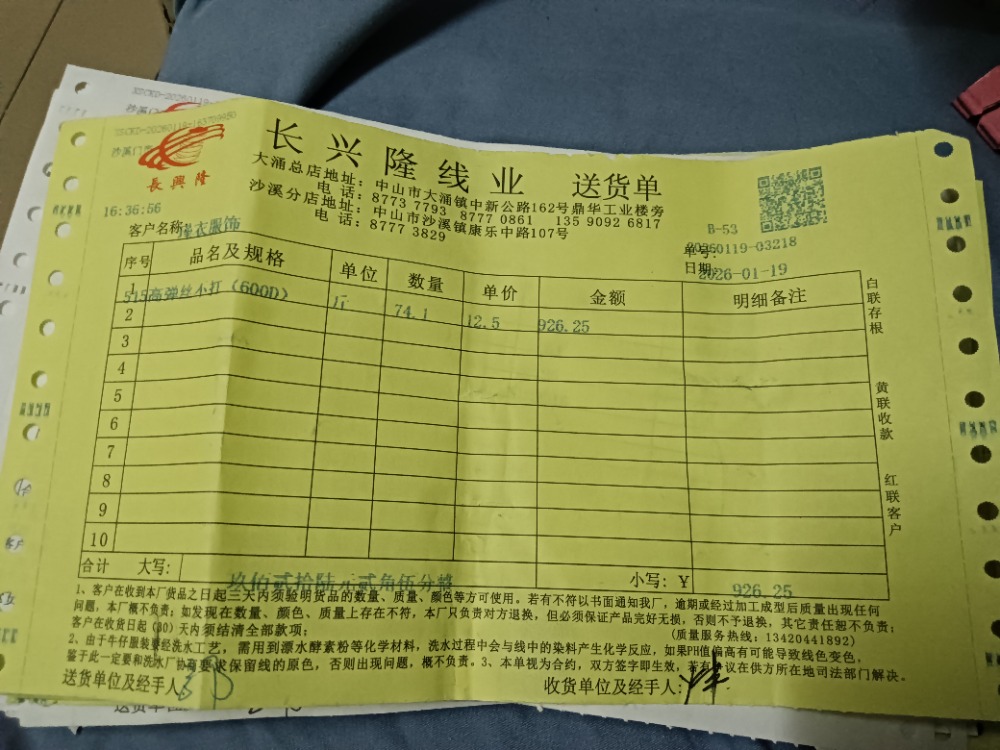 長興隆
长兴隆线业 送货单
大涌总店地址：中山市大涌镇中新公路162号鼎华工业楼旁
电话：8773 7793 8777 0861 135 9092 6817
沙溪分店地址：中山市沙溪镇康乐中路107号
电话：8777 3829
16:36:56
B-53
客户名称 衣服饰
单号: 20260119-03218
日期: 2026-01-19
序号 品名及规格 单位 数量 单价 金额 明细备注
1 515高弹丝小打（600D） 斤 74.1 12.5 926.25
2
3
4
5
6
7
8
9
10
合计 大写: 玖佰贰拾陆元贰角伍分整 小写: ￥ 926.25
白联存根
黄联收款
红联客户
1、客户在收到本厂货品之日起三天内须验明货品的数量、质量、颜色等方可使用。若有不符以书面通知我厂，逾期或经过加工成型后质量出现任何
问题，本厂概不负责；如发现在数量、颜色、质量上存在不符，本厂只负责对方退换，但必须保证产品完好无损，否则不予退换，其它责任恕不负责；
客户在收货日起（30）天内须结清全部款项； （质量服务热线：13420441892）
2、由于牛仔服装要经洗水工艺，需用到漂水酵素粉等化学材料，洗水过程中会与线中的染料产生化学反应，如果PH值偏高有可能导致线色变色，
鉴于此一定要和洗水厂协商要求保留线的原色，否则出现问题，概不负责。3、本单视为合约，双方签字即生效，若有争议在供方所在地司法部门解决。
送货单位及经手人:
收货单位及经手人: